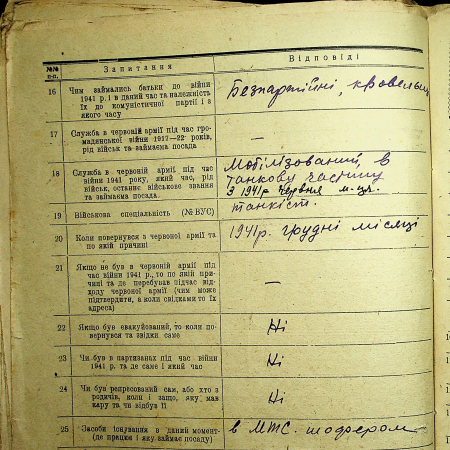 №№ п-п.
Запитання
Відповіді
16
Чим займались батьки до війни
1941 р. і в даний час та належність
їх до комуністичної партії і з
якого часу
Безпартійні
17
Служба в червоній армії під час гро-
мадянської війни 1917—22 років,
рід військ та займаєма посада
—
18
Служба в червоній армії під час
війни 1941 року, який час, рід
військ, останнє військове звання
та займаєма посада
Мобілізований в
танкову частину
З 1941р червня м-ця.
19
Військова спеціяльність (№ВУС)
танкіст.
20
Коли повернувся з червоної армії та
по якій причині
1941р. грудні місяці
21
Якщо не був в червоній армії під
час війни 1941 р., то по якій при-
чині та де перебував підчас від-
ходу червоної армії (чим може
підтвердити, а коли свідками то їх
адреса)
—
22
Якщо був евакуйований, то коли по-
вернувся та звідки саме
Ні
23
Чи був в партизанах під час війни
1941 р. та де саме і який час
Ні
24
Чи був репресований сам, або хто з
родичів, коли і защо, яку мав
кару та чи відбув її
Ні
25
Засоби існування в даний момент-
(де працює і яку займає посаду)
в МТС. шофером